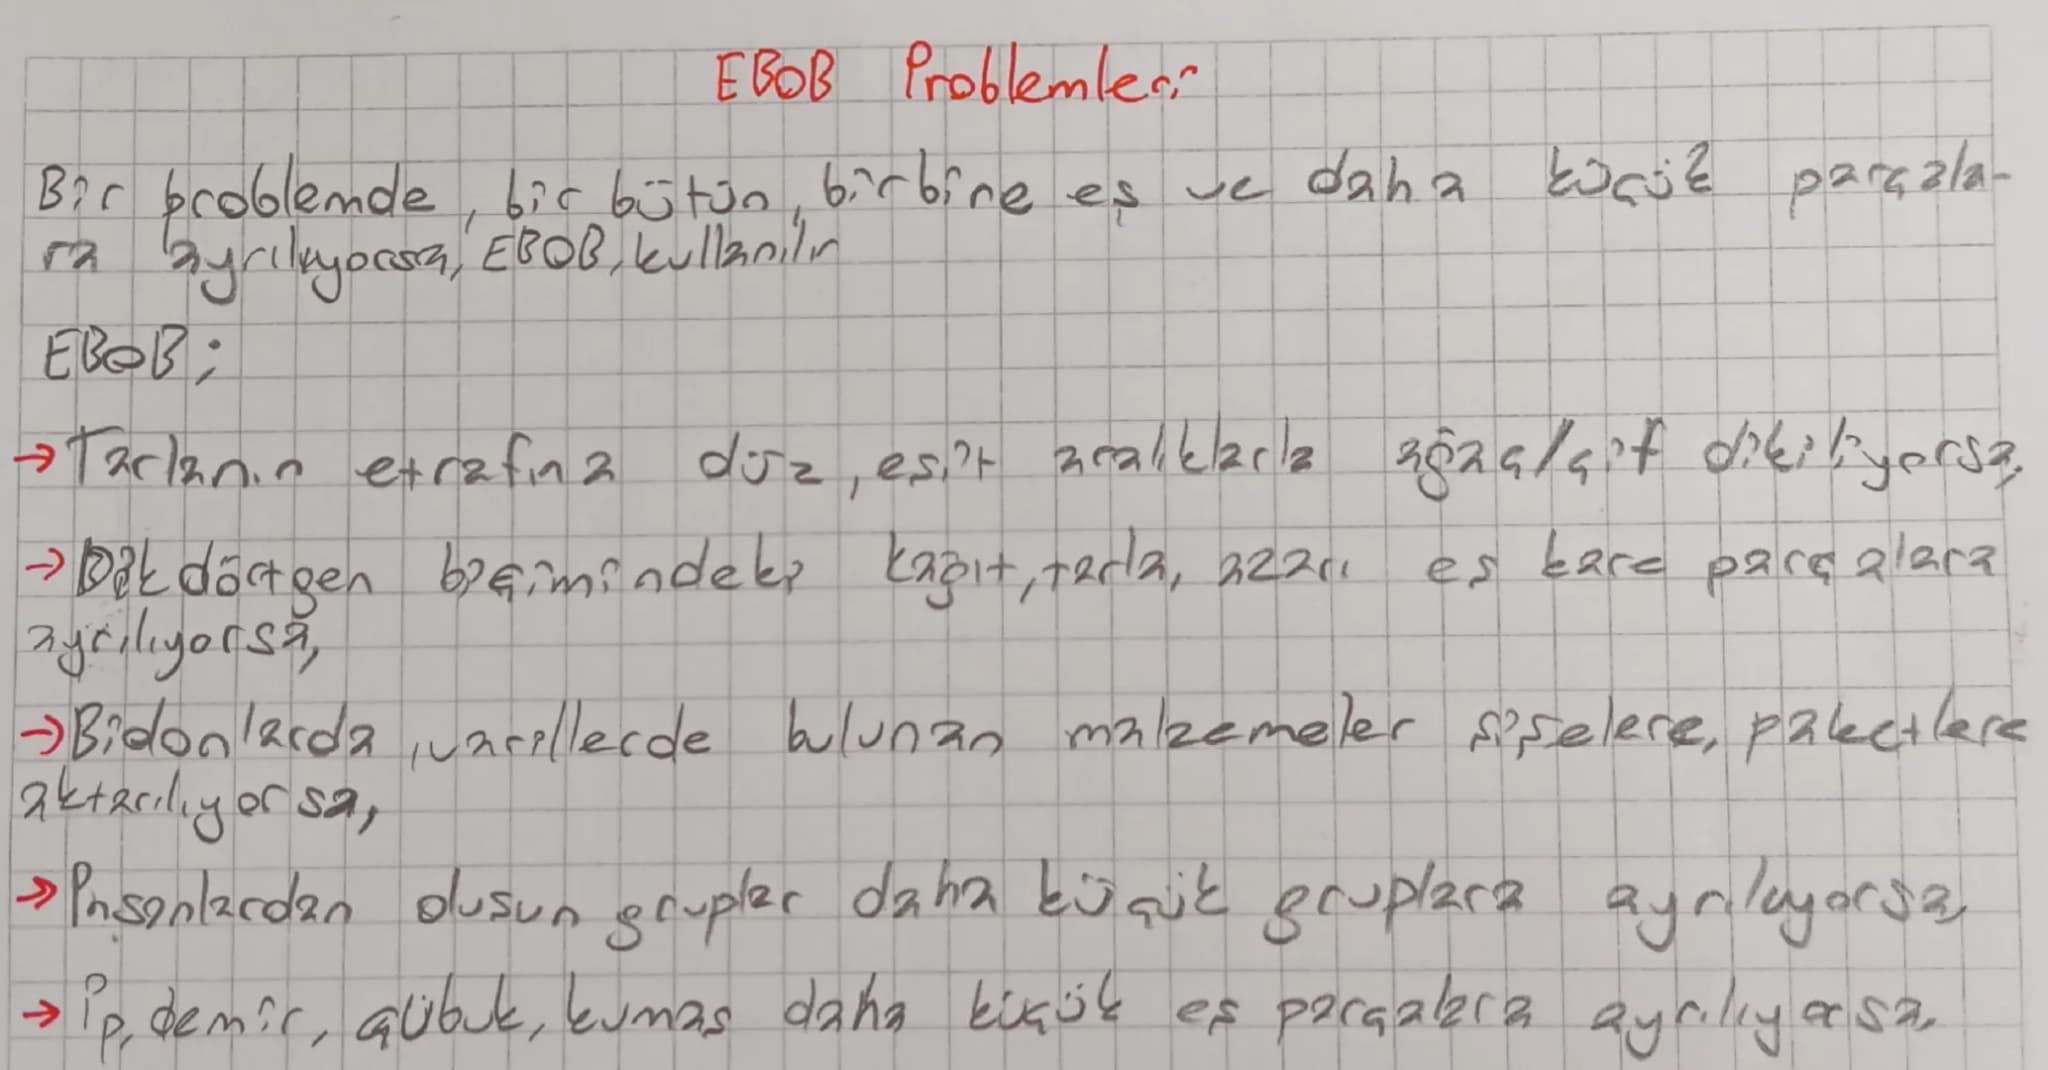 EBOB Problemleri
Bir problemde, bir bütün, birbine eş ve daha küçük parçala-
ra ayrılıyorsa, EBOB, kullanılır
EBOB;
→ Tarlanın etrafına düz, eşit aralıklarla ağaç/çit dikiliyorsa,
→ Dikdörtgen biçimindeki kağıt, tarla, arazi eş kare parçalara
ayrılıyorsa,
→ Bidonlarda, varillerde bulunan malzemeler şişelere, paketlere
aktarılıyorsa,
→ İnsanlardan olusun gruplar daha küçük gruplara ayrılıyorsa,
→ İp, demir, çübuk, kumas daha küçük eş parçalara ayrılıyorsa,